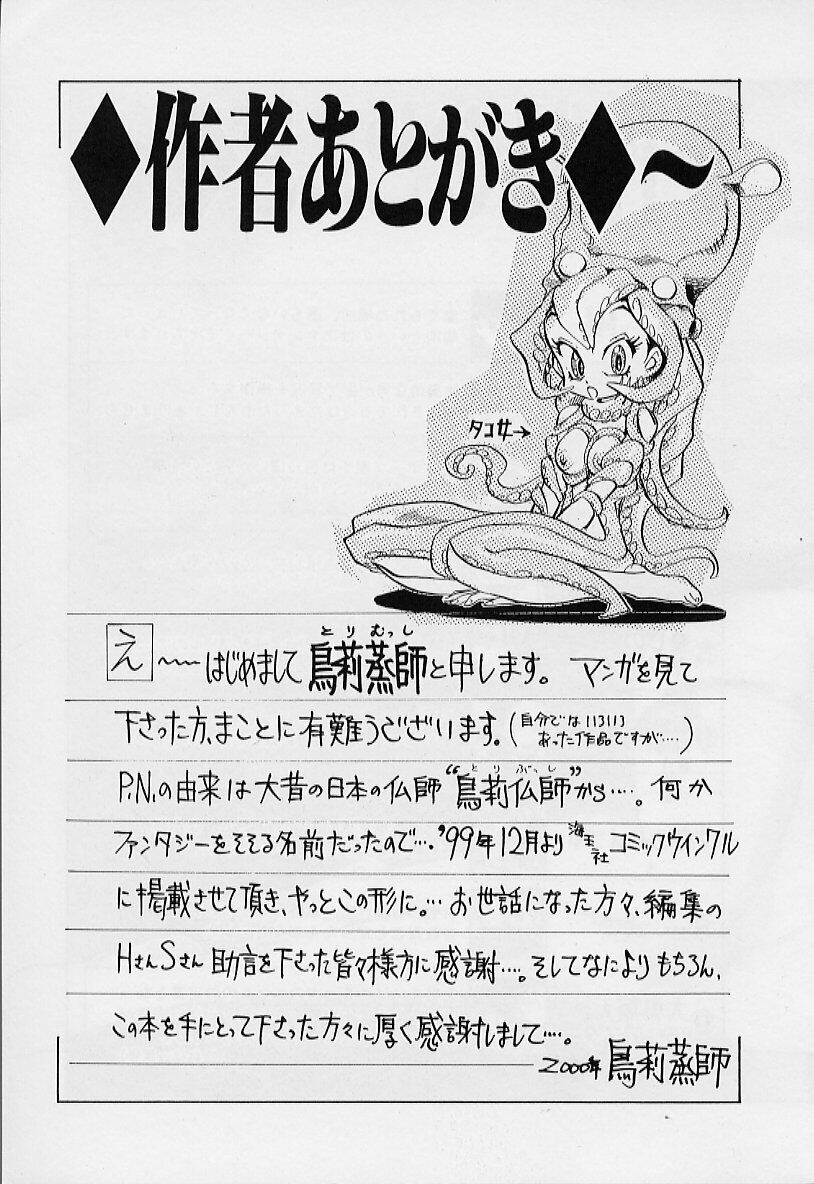 ◆作者あとがき◆〜
タコ女→
え〜〜はじめまして鳥莉蒸師と申します。マンガを見て
とりむっし
下さった方、まことに有難うございます。(自分では113113あった作品ですが‥‥)
P.N.の由来は大昔の日本の仏師“鳥莉仏師”から‥‥。何か
とりぶっし
ファンタジーをそそる名前だったので‥‥'99年12月より海王社コミックウインクル
に掲載させて頂き、やっとこの形に。‥‥お世話になった方々、編集の
HさんSさん助言を下さった皆々様方に感謝‥‥。そしてなによりもちろん、
この本を手にとって下さった方々に厚く感謝しまして‥‥。
2000年 鳥莉蒸師